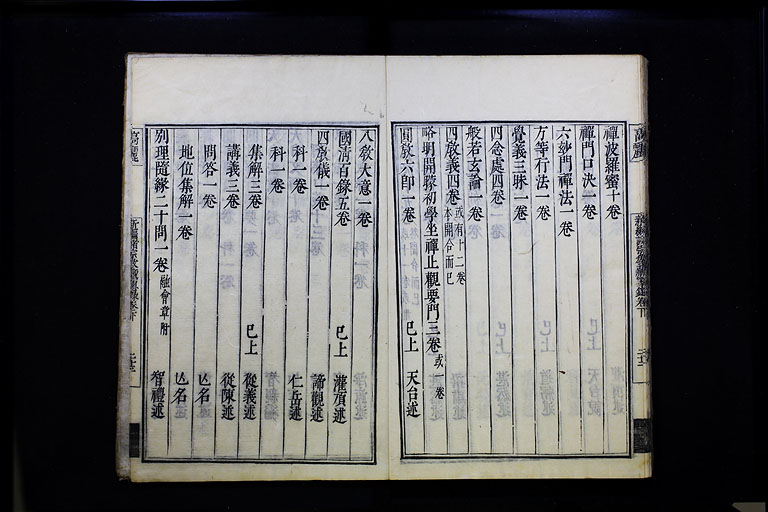 禪波羅蜜十卷
禪門口決一卷
六妙門禪法一卷
方等行法一卷
覺義三昧一卷
四念處四卷
般若玄論一卷
四敎義四卷 或有十二卷 本開合而已
略明開矇初學坐禪止觀要門三卷 或一卷
圓敎六卽一卷 已上 天台述
八敎大意一卷
國淸百錄五卷 已上 灌頂述
四敎儀一卷 諦觀述
科一卷 仁岳述
科一卷
集解三卷 已上 從義述
講義三卷 從陳述
問答一卷 亾名
地位集解一卷 亾名
別理隨緣二十問一卷 融會章附 智禮述